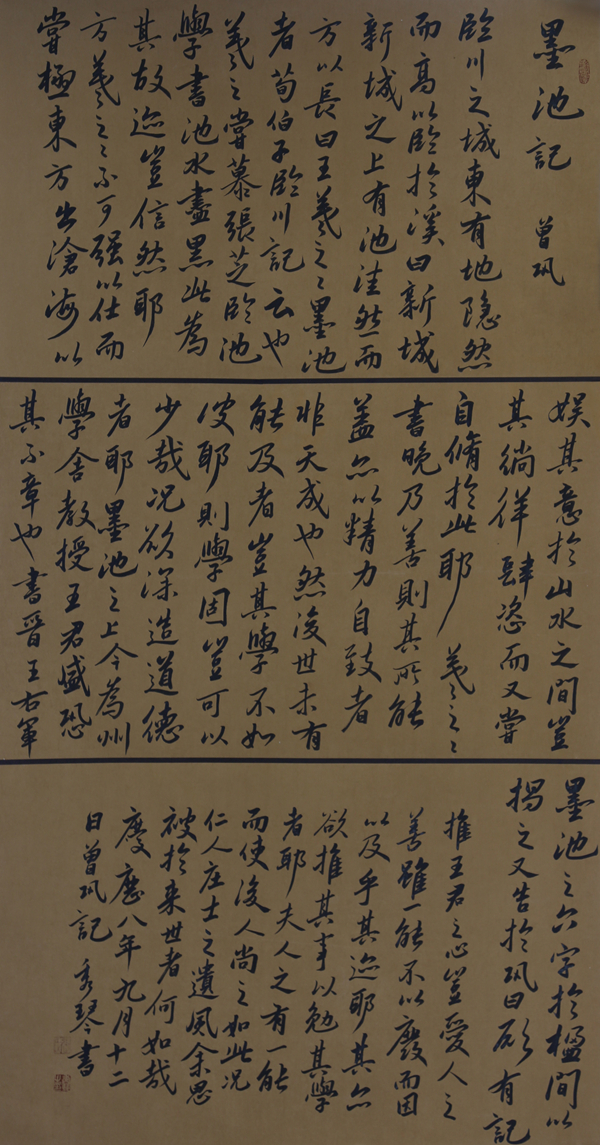 墨池記
曾巩
臨川之城東有地隐然
而高以臨於溪曰新城
新城之上有池洼然而
方以長曰王羲之之墨池
者荀伯子臨川記云也
羲之嘗慕張芝臨池
學書池水盡黑此為
其故迹豈信然耶
方羲之之不可强以仕而
嘗極東方出滄海以
娱其意於山水之間豈
其徜徉肆恣而又嘗
自脩於此耶羲之之
書晚乃善則其所能
蓋亦以精力自致者
非天成也然後世未有
能及者豈其學不如
彼耶則學固豈可以
少哉况欲深造道德
者耶墨池之上今為州
學舍教授王君盛恐
其不章也書晋王右軍
墨池之六字於楹間以
揭之又告於巩曰願有記
推王君之心豈愛人之
善雖一能不以廢而因
以及乎其迹耶其亦
欲推其事以勉其學
者耶夫人之有一能
而使後人尚之如此况
仁人庄士之遺風余思
被於来世者何如哉
慶歷八年九月十二
日曾巩記 秀琴書